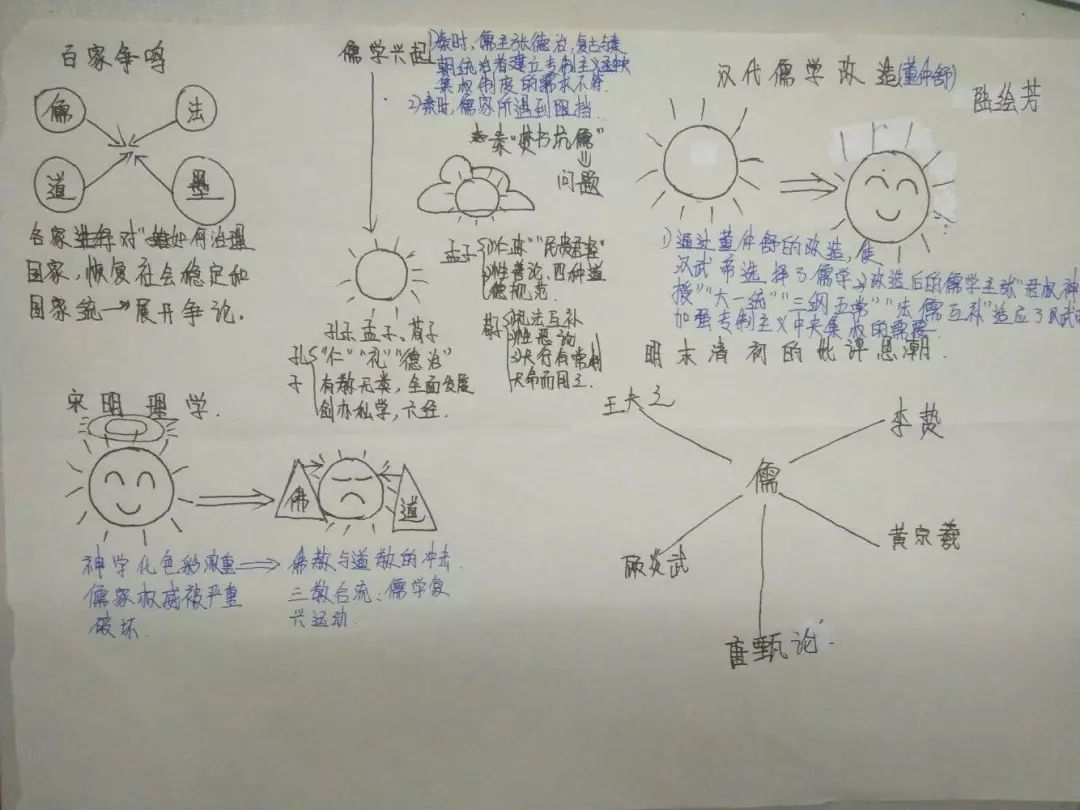 百家争鸣
儒
法
道
墨
各家对"如何治理
国家,恢复社会稳定和
国家统一"展开争论。
儒学兴起
1)秦时,儒主张德治,复古与秦
朝统治者建立专制主义中央
集权制度的需求不符.
2)秦时,儒家所遇到阻挡.
秦"焚书坑儒"
问题
孔子、孟子、荀子
孔子
"仁""礼""德治"
有教无类,全面发展
创办私学,六经.
孟子
1)"仁政""民贵君轻"
2)性善论,四种道
德规范.
荀
礼法互补
2)性恶论
3)天行有常,制
天命而用之.
汉代儒学改造(董仲舒)
陆绘芳
1)通过董仲舒的改造,使
汉武帝选择了儒学2)改造后的儒学主张"君权神
授""大一统""三纲五常""法儒互补"适应了汉武帝
加强专制主义中央集权的需要
宋明理学.
佛
道
神学化色彩浓重
儒家权威被严重
破坏.
佛教与道教的冲击.
三教合流:儒学复
兴运动.
明末清初的批评思潮.
王夫之
李贽
儒
顾炎武
黄宗羲
唐甄论.